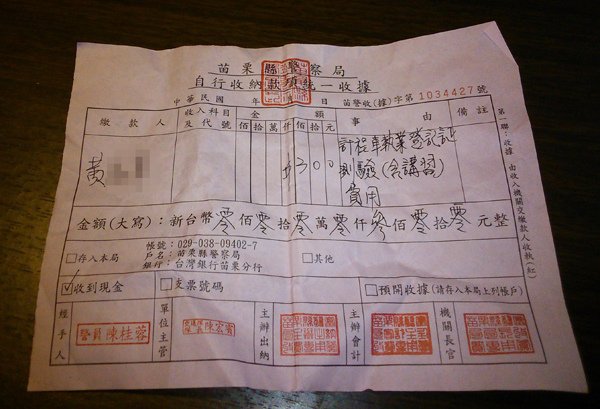 苗栗縣警察局
自行收納款項統一收據
中華民國 年 苗警收(據)字第1034427號
繳款人 收入科目及代號 金額 事由 備註
佰 拾 萬 仟 佰 拾 元
黃 $300 計程車執業登記証
測驗(含講習)
費用
金額(大寫):新台幣零佰零拾零萬零仟參佰零拾零元整
□存入本局 帳號:029-038-09402-7
戶名:苗栗縣警察局
銀行:台灣銀行苗栗分行
□其他
☑收到現金 □支票號碼 □預開收據(請存入本局上列帳戶)
經手人 警員陳桂蓉 單位主管 陳宏 主辦出納 主辦會計 機關長官
第一聯:收據 由收入機關交繳款人收執(紅)